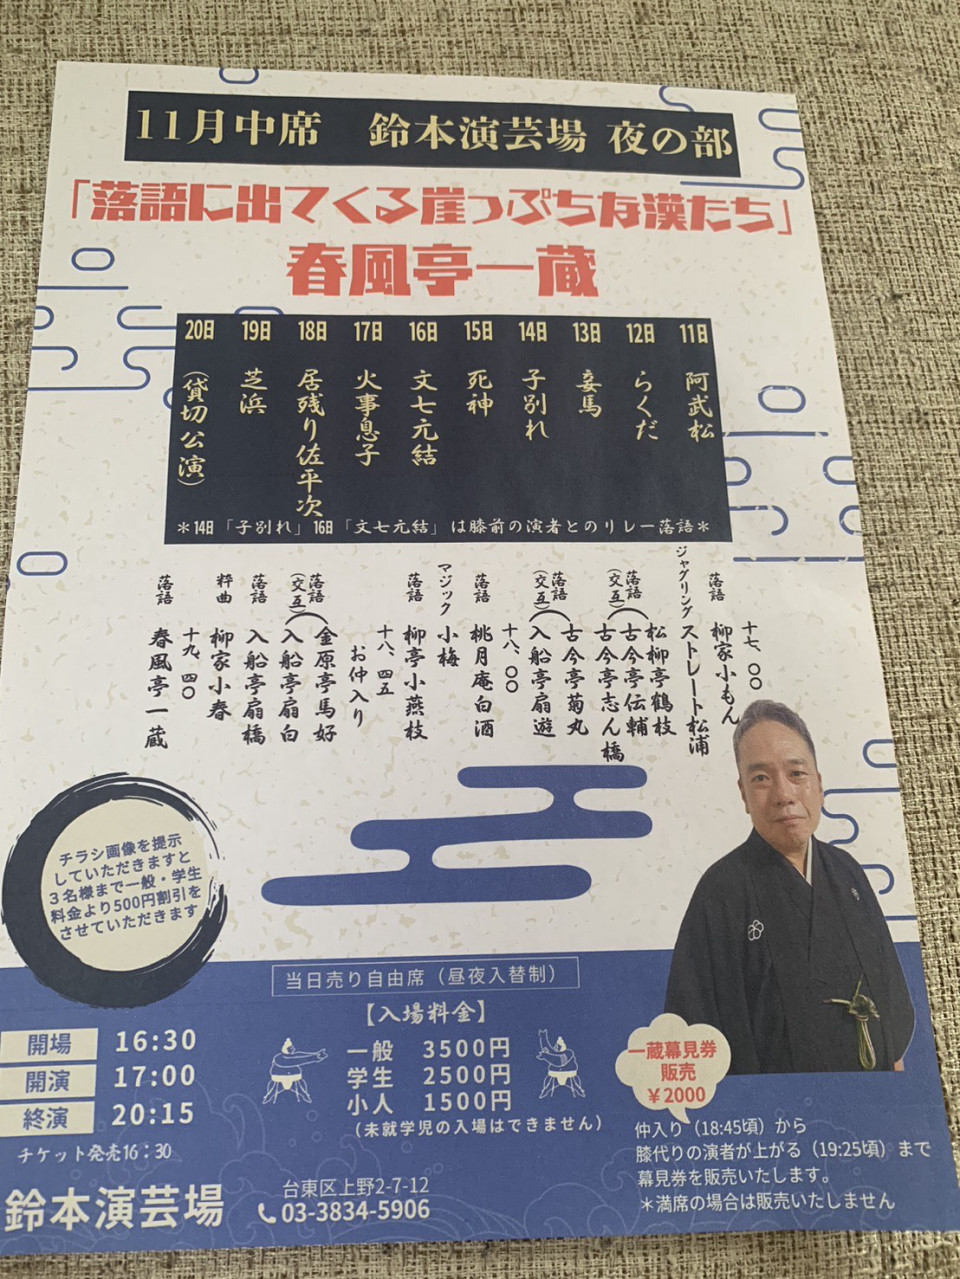 11月中席　鈴本演芸場 夜の部
「落語に出てくる崖っぷちな漢たち」
春風亭一蔵
11日 阿武松
12日 らくだ
13日 妾馬
14日 子別れ
15日 死神
16日 文七元結
17日 火事息子
18日 居残り佐平次
19日 芝浜
20日 (貸切公演)
＊14日「子別れ」16日「文七元結」は膝前の演者とのリレー落語＊
十七、〇〇
落語 柳家小もん
ジャグリング ストレート松浦
松柳亭鶴枝
落語(交互) 古今亭伝輔
古今亭志ん橋
古今亭菊丸
落語(交互) 入船亭扇遊
十八、〇〇
落語 桃月庵白酒
マジック 小梅
落語 柳亭小燕枝
十八、四五
お仲入り
金原亭馬好
落語(交互) 入船亭扇白
落語 入船亭扇橋
粋曲 柳家小春
十九、四〇
落語 春風亭一蔵
チラシ画像を提示
していただきますと
３名様まで一般・学生
料金より500円割引を
させていただきます
当日売り自由席（昼夜入替制）
【入場料金】
一般　3500円
学生　2500円
小人　1500円
（未就学児の入場はできません）
開場 16:30
開演 17:00
終演 20:15
チケット発売16：30
鈴本演芸場
台東区上野2-7-12
03-3834-5906
一蔵幕見券
販売
￥2000
仲入り（18:45頃）から
膝代りの演者が上がる（19:25頃）まで
幕見券を販売いたします。
＊満席の場合は販売いたしません